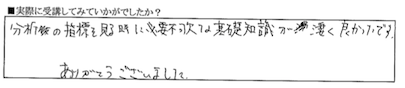 ■実際に受講してみていかがでしたか？
分析後の指標を見る時に必要不可欠な基礎知識が凄く良かったです。
ありがとうございました。